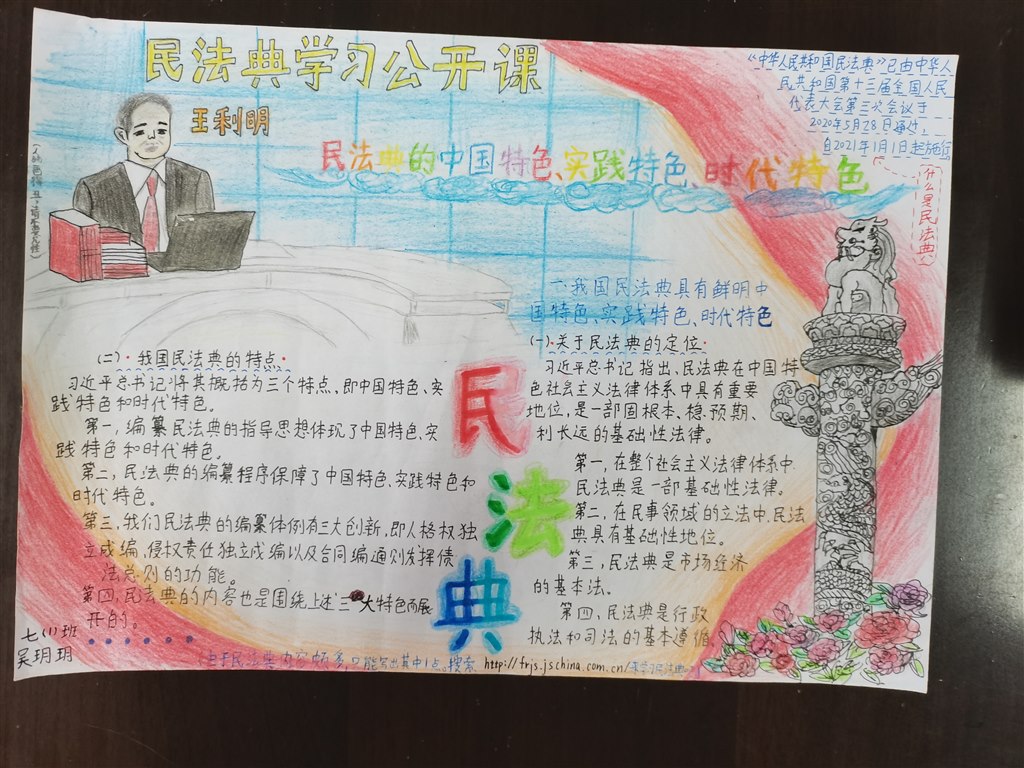 民法典学习公开课
王利明
民法典的中国特色、实践特色、时代特色
《中华人民共和国民法典》已由中华人
民共和国第十三届全国人民
代表大会第三次会议于
2020年5月28日通过,
自2021年1月1日起施行
什么是民法典?
一、我国民法典具有鲜明中
国特色、实践特色、时代特色
(一)·关于民法典的定位·
习近平总书记指出、民法典在中国特
色社会主义法律体系中具有重要
地位,是一部固根本、稳预期、
利长远的基础性法律。
第一,在整个社会主义法律体系中
民法典是一部基础性法律。
第二,在民事领域的立法中,民法
典具有基础性地位。
第三,民法典是市场经济
的基本法。
第四、民法典是行政
执法和司法的基本遵循
(二)·我国民法典的特点·
习近平总书记将其概括为三个特点、即中国特色、实
践特色和时代特色。
第一,编纂民法典的指导思想体现了中国特色、实
践特色和时代特色。
第二,民法典的编纂程序保障了中国特色、实践特色和
时代特色。
第三、我们民法典的编纂体例有三大创新,即人格权独
立成编,侵权责任独立成编以及合同编通则发挥债
法总则的功能。
第四,民法典的内容也是围绕上述三大特色而展
开的。
民
法
典
七(1)班
吴玥玥
由于民法典内容颇多,只能写出其中1点。搜索 http://frjs.jschina.com.cn/